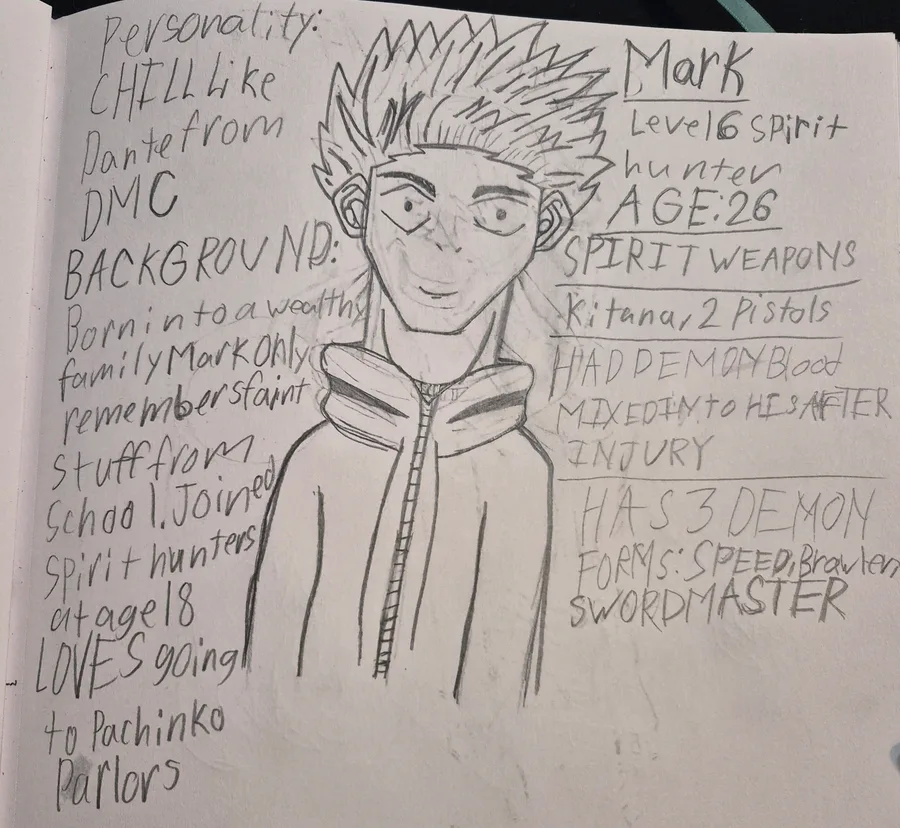 Personality:
CHILL Like
Dante from
DMC
BACKGROUND:
Born into a wealthy
family Mark Only
remembers faint
stuff from
School. Joined
Spirit hunters
at age 18
LOVES going
to Pachinko
Parlors
Mark
Level 6 spirit
hunter
AGE: 26
SPIRIT WEAPONS
Kitana, 2 Pistols
HAD DEMON Blood
MIXED INTO HIS AFTER
INJURY
HAS 3 DEMON
FORMS: SPEED, Brawler
SWORDMASTER